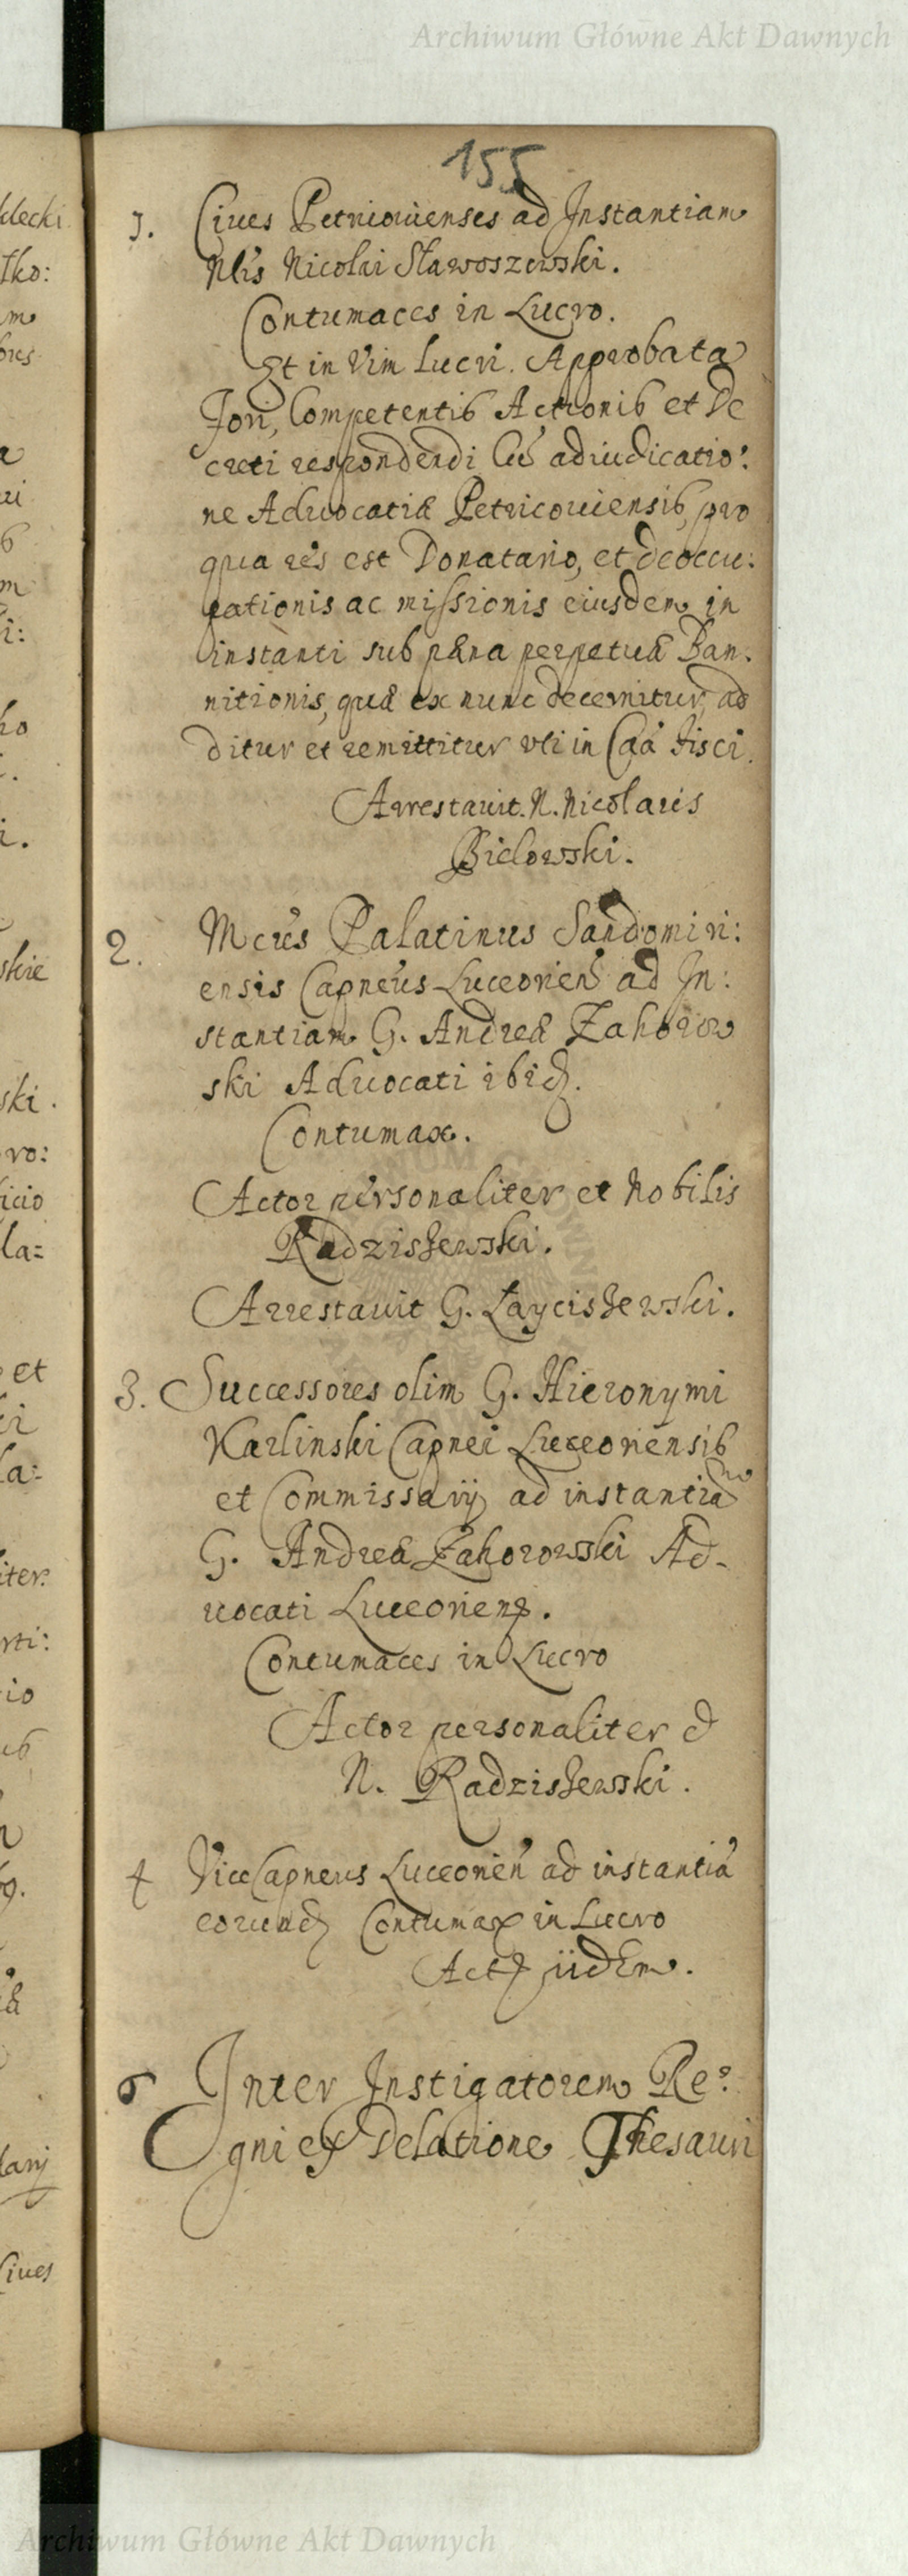 Archiwum Główne Akt Dawnych
155
1. Ciues Petricouienses ad Instantiam
Nlis Nicolai Sławoszewski.
Contumaces in Lucro.
Et in Vim lucri. Approbata
Fori, Competentis Actionis et De
creti respondendi Cũ adiudicatio:
ne Aduocatiæ Petricouiensis, pro
qua res est Donatario, et deoccu:
pationis ac missionis eiusdem in
instanti sub pæna perpetuæ Ban:
nitionis, quæ ex nunc decernitur, ad
ditur et remittitur vti in Caã Fisci.
Arrestauit. N. Nicolaus
Bielowski.
2. Mcus Palatinus Sandomiri:
ensis Capneus Luceorien ad In:
stantiam G. Andreæ Zahorow
ski Aduocati ibid.
Contumax.
Actor personaliter et Nobilis
Radziszewski.
Arrestauit G. Łayciszewski.
3. Successores olim G. Hieronymi
Karlinski Capnei Luceoriensis
et Commissarij ad instantiam
G. Andreæ Zahorowski Ad-
uocati Luceorien.
Contumaces in Lucro
Actor personaliter &
N. Radziszewski.
4 ViceCapneus Luceorien ad instantiã
eorund Contumax in Lucro
Act iidem.
5 Inter Instigatorem Re:
gni ex Delatione Thesauri
klecki
tko:
skie
ski.
ro:
icio
la:
et
la:
iter
rti:
io
larij
Ciues
Archiwum Główne Akt Dawnych